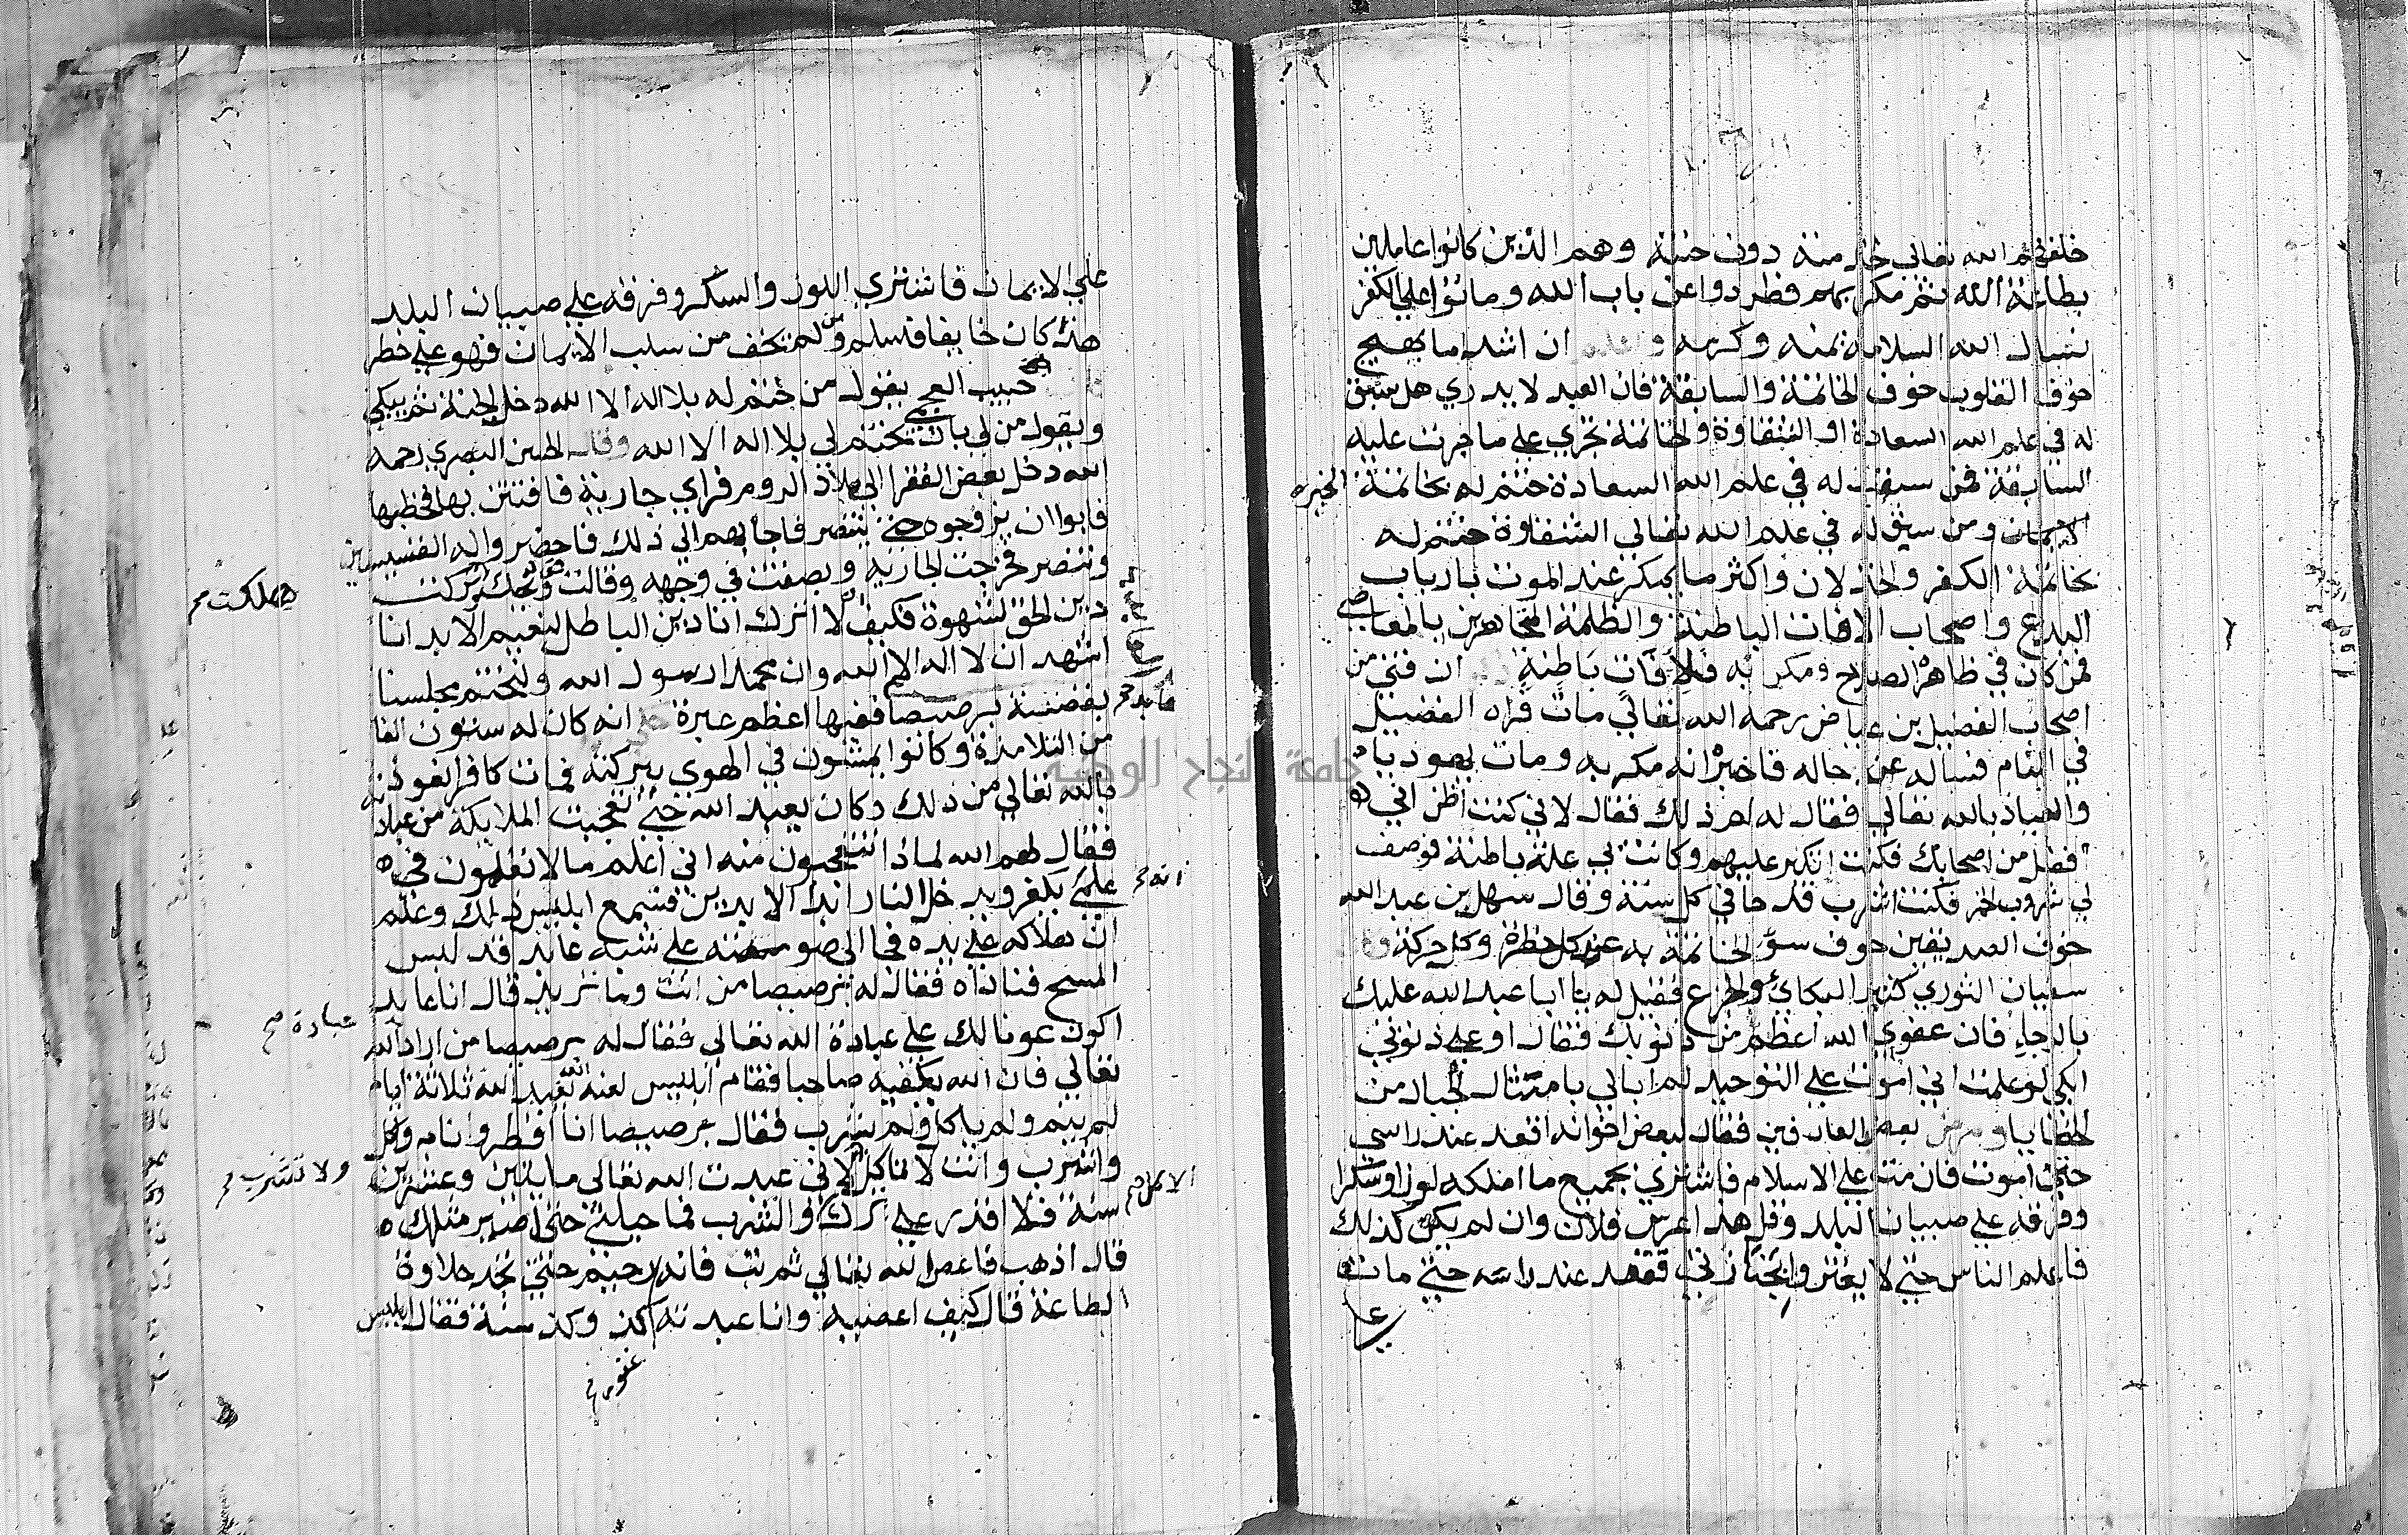 خلفهم الله تعالى منه دون جنته وهم الذين كانوا عاملين
بطاعة الله ثم مكر بهم فطردوا عن باب الله وماتوا على الكفر
نسال الله السلامة بمنه وكرمه و ان اشد ما يهيج
خوف القلوب خوف الخاتمة والسابقة فان العبد لا يدري هل سبق
له في علم الله السعادة او الشقاوة والخاتمة تجري علي ما جرت عليه
السابقة فمن سبقت له في علم الله السعادة ختم له بخاتمة الخير
الايمان ومن سبق له في علم الله تعالي الشقاوة ختم له
بخاتمة الكفر والخذلان واكثر ما يمكر عند الموت بارباب
البدع واصحاب الافات الباطنة والظلمة المجاهرين بالمعاصي
فمن كان في ظاهر الصلاح ومكر به فلافات باطنة ان فتي من
اصحاب الفضيل بن عياض رحمه الله تعالي مات فراه الفضيل
في المنام فساله عن حاله فاخبر انه مكر به ومات يهوديا
والعياذ بالله تعالي فقال له لم ذلك فقال لاني كنت اظن اني
افضل من اصحابك فكنت اتكبر عليهم وكانت بي علة باطنة فوصف
لي شروب الخمر فكنت اشرب قدحا في كل سنة وقال سهل بن عبد الله
خوف الصديقين خوف سو الخاتمة به عند كل خطرة وكل حركة
سفيان الثوري كثير البكاي والجزع فقيل له يا ابا عبد الله عليك
بالرجاء فان عفو الله اعظم من ذنوبك فقال او علي ذنوبي
ابكي لو علمت اني اموت علي التوحيد لم ابالي بامثال الجبال من
الخطايا ومرض بعض العارفين فقال لبعض اخوانه اقعد عند راسي
حتي اموت فان مت علي الاسلام فاشتري بجميع ما املكه لوزا وسكرا
وفرقه علي صبيان البلد وقل هذا عرس فلان وان لم يكن كذلك
فاعلم الناس حتي لا يغتروا بجنازتي فقعد عند راسه حتي مات
علي
علي الايمان فاشتري اللوز والسكر وفرقه علي صبيان البلد
كان خايفا فسلم ومن لم يخف من سلب الايمان فهو علي خطر
حبيب العجمي يقول من ختم له بلا اله الا الله دخل الجنة ثم يبكي
ويقول من لي بان يختم لي بلا اله الا الله وقال الحسن البصري رحمه
الله دخل بعض الفقرا الي بلاد الروم فراي جارية فافتتن بها فخطبها
فابوا ان يزوجوه حتي يتنصر فاجابهم الي ذلك فاحضروا له القسيسين
وتنصر فخرجت الجارية وبصقت في وجهه وقالت ويحك تركت
هلكت
دين الحق لشهوة فكيف لا اترك انا دين الباطل لنعيم الابد انا
اشهد ان لا اله الا الله وان محمدا رسول الله ولنختم مجلسنا
بقصة برصيصا ففيها اعظم عبرة انه كان له ستون الفا
من التلامذة وكانوا يمشون في الهوي ببركته فمات كافرا نعوذ
بالله تعالي من ذلك وكان يعبد الله حتي تعجبت الملايكة من عبادته
فقال لهم الله لماذا تتعجبون منه اني اعلم ما لا تعلمون في
علمي يكفر ويدخل النار ابدا الابدين فسمع ابليس ذلك وعلم
انه
ان هلاكه علي يده فجا الي صومعته علي شبه عابد قد لبس
المسح فناداه فقال له برصيصا من انت وما تريد قال انا عابد
اكون عونا لك علي عبادة الله تعالي فقال له برصيصا من اراد الله
عبادة صح
تعالي فان الله يكفيه صاحبا فقام ابليس لعنه الله يعبد الله ثلاثة ايام
لم ينم ولم ياكل ولم يشرب فقال برصيصا انا افطر وانام واكل
واشرب وانت لا تاكل لاني عبدت الله تعالي مايتين وعشرين
ولا تشرب
سنة فلا اقدر علي ترك والشرب فما حيلتي حتي اصير مثلك
الاكل
قال اذهب فاعص الله تعالي ثم تب فانه رحيم حتي تجد حلاوة
غفور
الطاعة قال كيف اعصيه وانا عبدته كذ وكذ سنة فقال ابليس
جامعة النجاح الوطنية